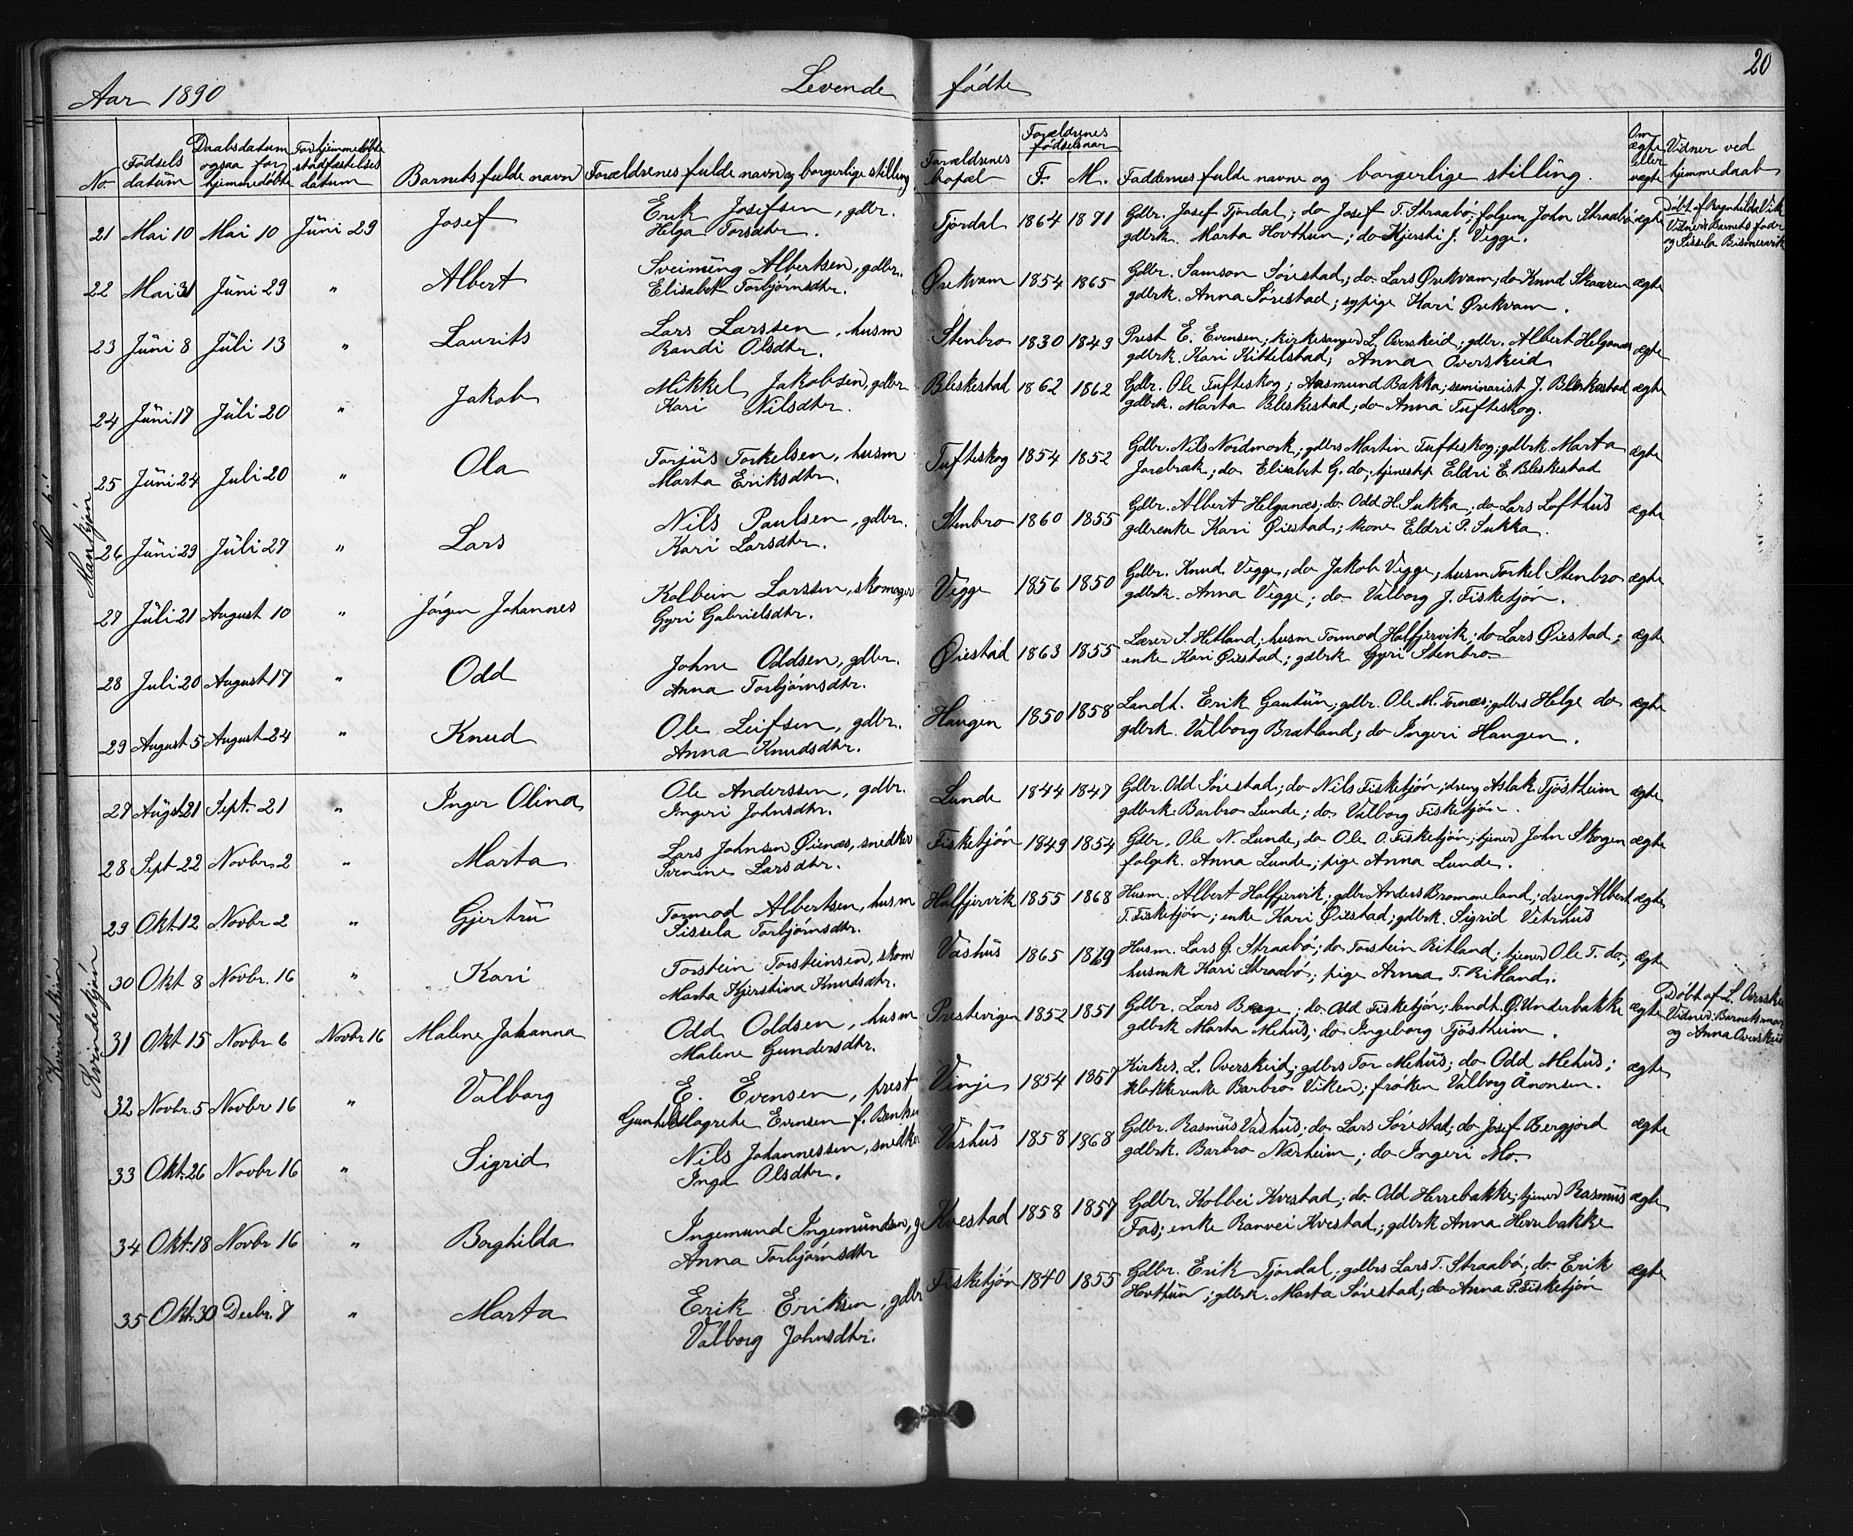 20
Aar 1890 Levende fødte
No. Fødsels datum Daabsdatum ogsaa for hjemmedøbte For hjemmedøbte stadfæstelses datum Barnets fulde navn Forældrenes fulde navn og borgerlige stilling Forældrenes bopæl Forældrenes fødselsaar F. M. Faddernes fulde navne og borgerlige stilling. Om ægte eller uægte Vidner ved hjemmedaab
Mankjøn
21 Mai 10 Mai 10 Juni 29 Josef Erik Josefsen, gdbr. Tjørdal 1864 1871 Gdbr. Josef Tjørdal; do Josef T. Straabø; folgem John Straabø ægte Døbt af Ragnhilda Vik
Helga Torsdtr. gdbrk. Marta Hovthun; do Kjersti J. Vegge. Vidner: Barnets fader
og Sissela Bismervik
22 Mai 31 Juni 29 " Albert Sveinung Albertsen, gdbr. Ørekvam 1854 1865 Gdbr. Samson Sørestad; do Lars Ørekvam; do Knud Skaaren ægte
Elisabet Torbjørnsdtr. gdbrk. Anna Sørestad; sypige Kari Ørekvam.
23 Juni 8 Juli 13 " Laurits Lars Larssen, husm Stenbro 1830 1849 Prest E. Evensen; kirkesanger L. Overskeid; gdbr. Albert Helganes ægte
Randi Olsdtr. gdbrk. Kari Kittelstad; Anna Overskeid
24 Juni 17 Juli 20 " Jakob Mikkel Jakobsen, gdbr Bleskestad 1862 1862 Gdbr. Ole Tufteskog; Aasmund Bakka; seminarist J. Bleskestad ægte
Kari Nilsdtr. gdbrk. Marta Bleskestad; do Anna Tufteskog.
25 Juni 24 Juli 20 " Ola Torjus Torkelsen, husm Tufteskog 1854 1852 Gdbr. Nils Nordmork; gdbrs Martin Tufteskog; gdbrk Marta ægte
Marta Eriksdtr. Jorebræk; do Elisabet G. do; tjenestep Eldri E. Bleskestad
26 Juni 29 Juli 27 " Lars Nils Paulsen, gdbr. Stenbro 1860 1855 Gdbr. Albert Helganes; do Odd H. Sukka; do Lars Lofthus ægte
Kari Larsdtr. gdbrenke Kari Øiestad; kone Eldri P. Sukka.
27 Juli 21 August 10 " Jørgen Johannes Kolbein Larssen, skomager Vegge 1856 1850 Gdbr. Knud Vegge; do Jakob Vegge; husm Torkel Stenbro ægte
Gyri Gabrielsdtr. gdbrk. Anna Vegge; do Valborg J. Fisketjøn.
28 Juli 20 August 17 " Odd Johne Oddsen, gdbr. Øiestad 1863 1855 Lærer S. Hetland; husm Tormod Halfjervik; do Lars Øiestad; ægte
Anna Torbjørnsdtr. enke Kari Øiestad; gdbrk Gyri Stenbro
29 August 5 August 24 " Knud Ole Leifsen, gdbr. Haugen 1850 1858 Landh. Erik Gautun; gdbr. Ole M. Tornæs; gdbrs Helge do ægte
Anna Knudsdtr. gdbrk. Valborg Bratland; do Ingeri Haugen.
Kvindekjøn
Kvindekjøn
27 August 21 Sept. 21 " Inger Olina Ole Anderssen, gdbr. Lunde 1844 1847 Gdbr. Odd Sørestad; do Nils Fisketjøn; dreng Aslak Tjøstheim ægte
Ingeri Johnsdtr. gdbrk. Barbro Lunde; do Valborg Fisketjøn.
28 Sept 22 Novbr 2 " Marta Lars Johnsen Øienæs, snedker Fisketjøn 1849 1854 Gdbr. Ole N. Lunde; do Ole O. Fisketjøn; tjener John Skogen ægte
Larsdtr. folgek. Anna Lunde; pige Anna Lunde.
29 Okt 12 Novbr 2 " Gjertru Tormod Albertsen, husm Halfjervik 1855 1868 Husm. Albert Halfjervik; gdbr Anders Brommeland; dreng Albert ægte
Sissela Torbjørnsdtr. T. Fisketjøn; enke Kari Øiestad; gdbrk. Sigrid Vetrhus
30 Okt 8 Novbr. 16 " Kari Torstein Torsteinsen, skom Vashus 1865 1869 Husm. Lars G. Straabø; do Torstein Ritland; tjener Ole T. do; ægte
Marta Kjerstina Knudsdtr. husmk Kari Straabø; pige Anna T. Ritland.
31 Okt 15 Novbr 6 Novbr 16 Malene Johanna Odd Oddsen, husm Prestevigen 1852 1851 Gdbr. Lars Berge; do Odd Fisketjøn; landh. Ø. Underbakke ægte Døbt af L. Overske
Malene Gundersdtr. gdbrk Marta Mehus; do Ingeborg Tjøstheim. Vidner: Barnets mor
og Anna Overskeid
32 Novbr. 5 Novbr 16 " Valborg E. Evensen, prest Vinje 1854 1857 Kirkes. L. Overskeid; gdbrs Tor Mehus; do Odd Mehus; ægte
Evensen f. klokkerenke Barbro Viken; frøken Valborg Aanonsen.
33 Okt. 26 Novbr 16 " Sigrid Nils Johannessen, snedke Vashus 1858 1868 Gdbr. Rasmus Vashus; do Lars Sørestad; do Josef Bergjord ægte
Inga Olsdtr. gdbrk. Barbro Nærheim; do Ingeri Mo.
34 Okt. 18 Novbr 16 " Borghilda Ingemund Ingemundsen, g Kvestad 1858 1857 Gdbr. Kolbei Kvestad; do Odd Herrebakke; tjener Rasmus ægte
Anna Torbjørnsdtr Fos; enke Ranvei Kvestad; gdbrk Anna Herrebakke
35 Okt. 30 Decbr. 7 " Marta Erik Eriksen, gdbr Fisketjøn 1840 1855 Gdbr. Erik Tjørdal; gdbrs Lars T. Straabø; do Erik ægte
Valborg Johnsdtr. Hovthun; gdbrk. Marta Sørestad; do Anna P. Fisketjøn